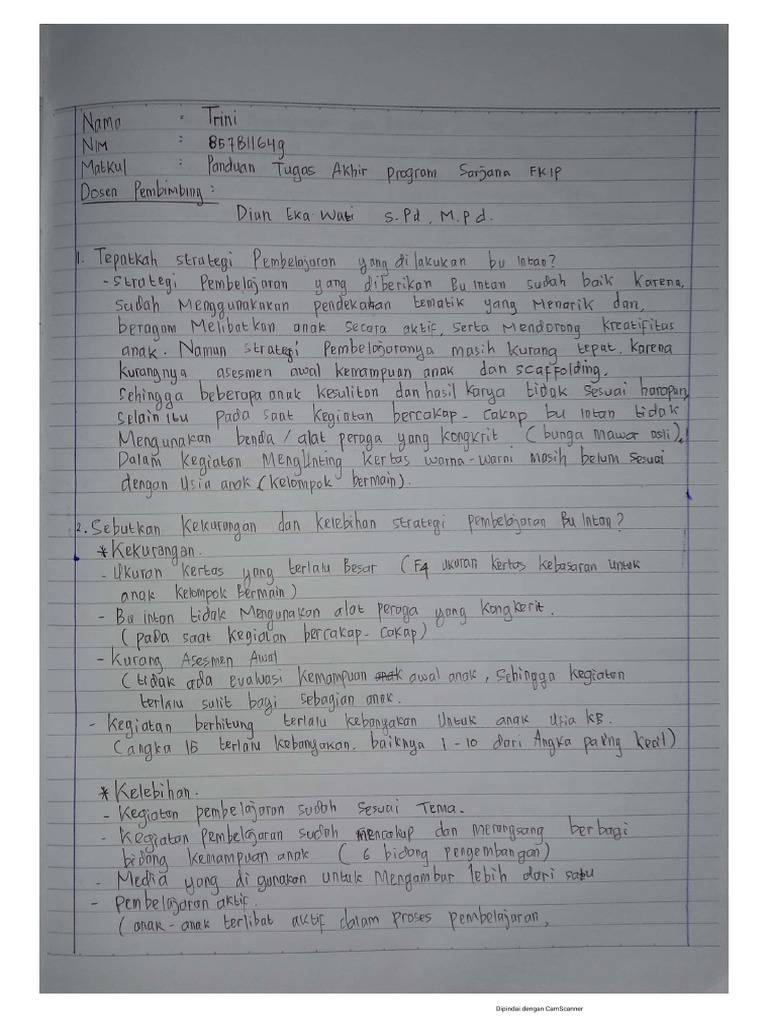 Nama : Trini
NIM : 857811649
Matkul : Panduan Tugas Akhir Program Sarjana FKIP
Dosen Pembimbing :
Dian Eka Wati S.Pd, M.Pd.
1. Tepatkah strategi Pembelajaran yang dilakukan bu Intan?
- Strategi Pembelajaran yang diberikan Bu Intan sudah baik karena,
sudah Menggunakakan pendekatan tematik yang Menarik dan,
beragam Melibatkan anak secara aktif, serta Mendorong kreatifitas
anak. Namun strategi Pembelajaranya masih kurang tepat. karena
kurangnya asesmen awal kemampuan anak dan scaffolding,
sehingga beberapa anak kesulitan dan hasil karya tidak sesuai harapan,
selain itu pada saat kegiatan bercakap-cakap bu intan tidak
Mengunakan benda / alat peraga yang kongkrit. (bunga mawar asli),
Dalam kegiatan Mengunting kertas warna-warni masih belum sesuai
dengan usia anak (kelompok bermain).
2. Sebutkan kekurangan dan kelebihan strategi pembelajaran Bu Intan?
* Kekurangan.
- Ukuran kertas yang terlalu Besar (F4 ukuran kertas kebasaran untuk
anak kelompok Bermain)
- Bu intan tidak Mengunakan alat peraga yang kongkerit.
(pada saat kegiatan bercakap-cakap)
- Kurang Asesmen Awal
(tidak ada evaluasi kemampuan awal anak, sehingga kegiaten
terlalu sulit bagi sebagian anak.
- Kegiatan berhitung terlalu kebanyakan Untuk anak usia KB.
(angka 15 terlalu kebanyakan. baiknya 1-10 dari Angka paling kecil)
* Kelebihan.
- Kegiatan pembelajaran sudah sesuai Tema.
- Kegiatan Pembelajaran sudah mencakup dan merangsang berbagi
bidang kemampuan anak (6 bidang pengembangan)
- Media yang di gunakan untuk Mengambar lebih dari satu
- Pembelajaran aktif.
(anak-anak terlibat aktif dalam proses pembelajaran,
Dipindai dengan CamScanner